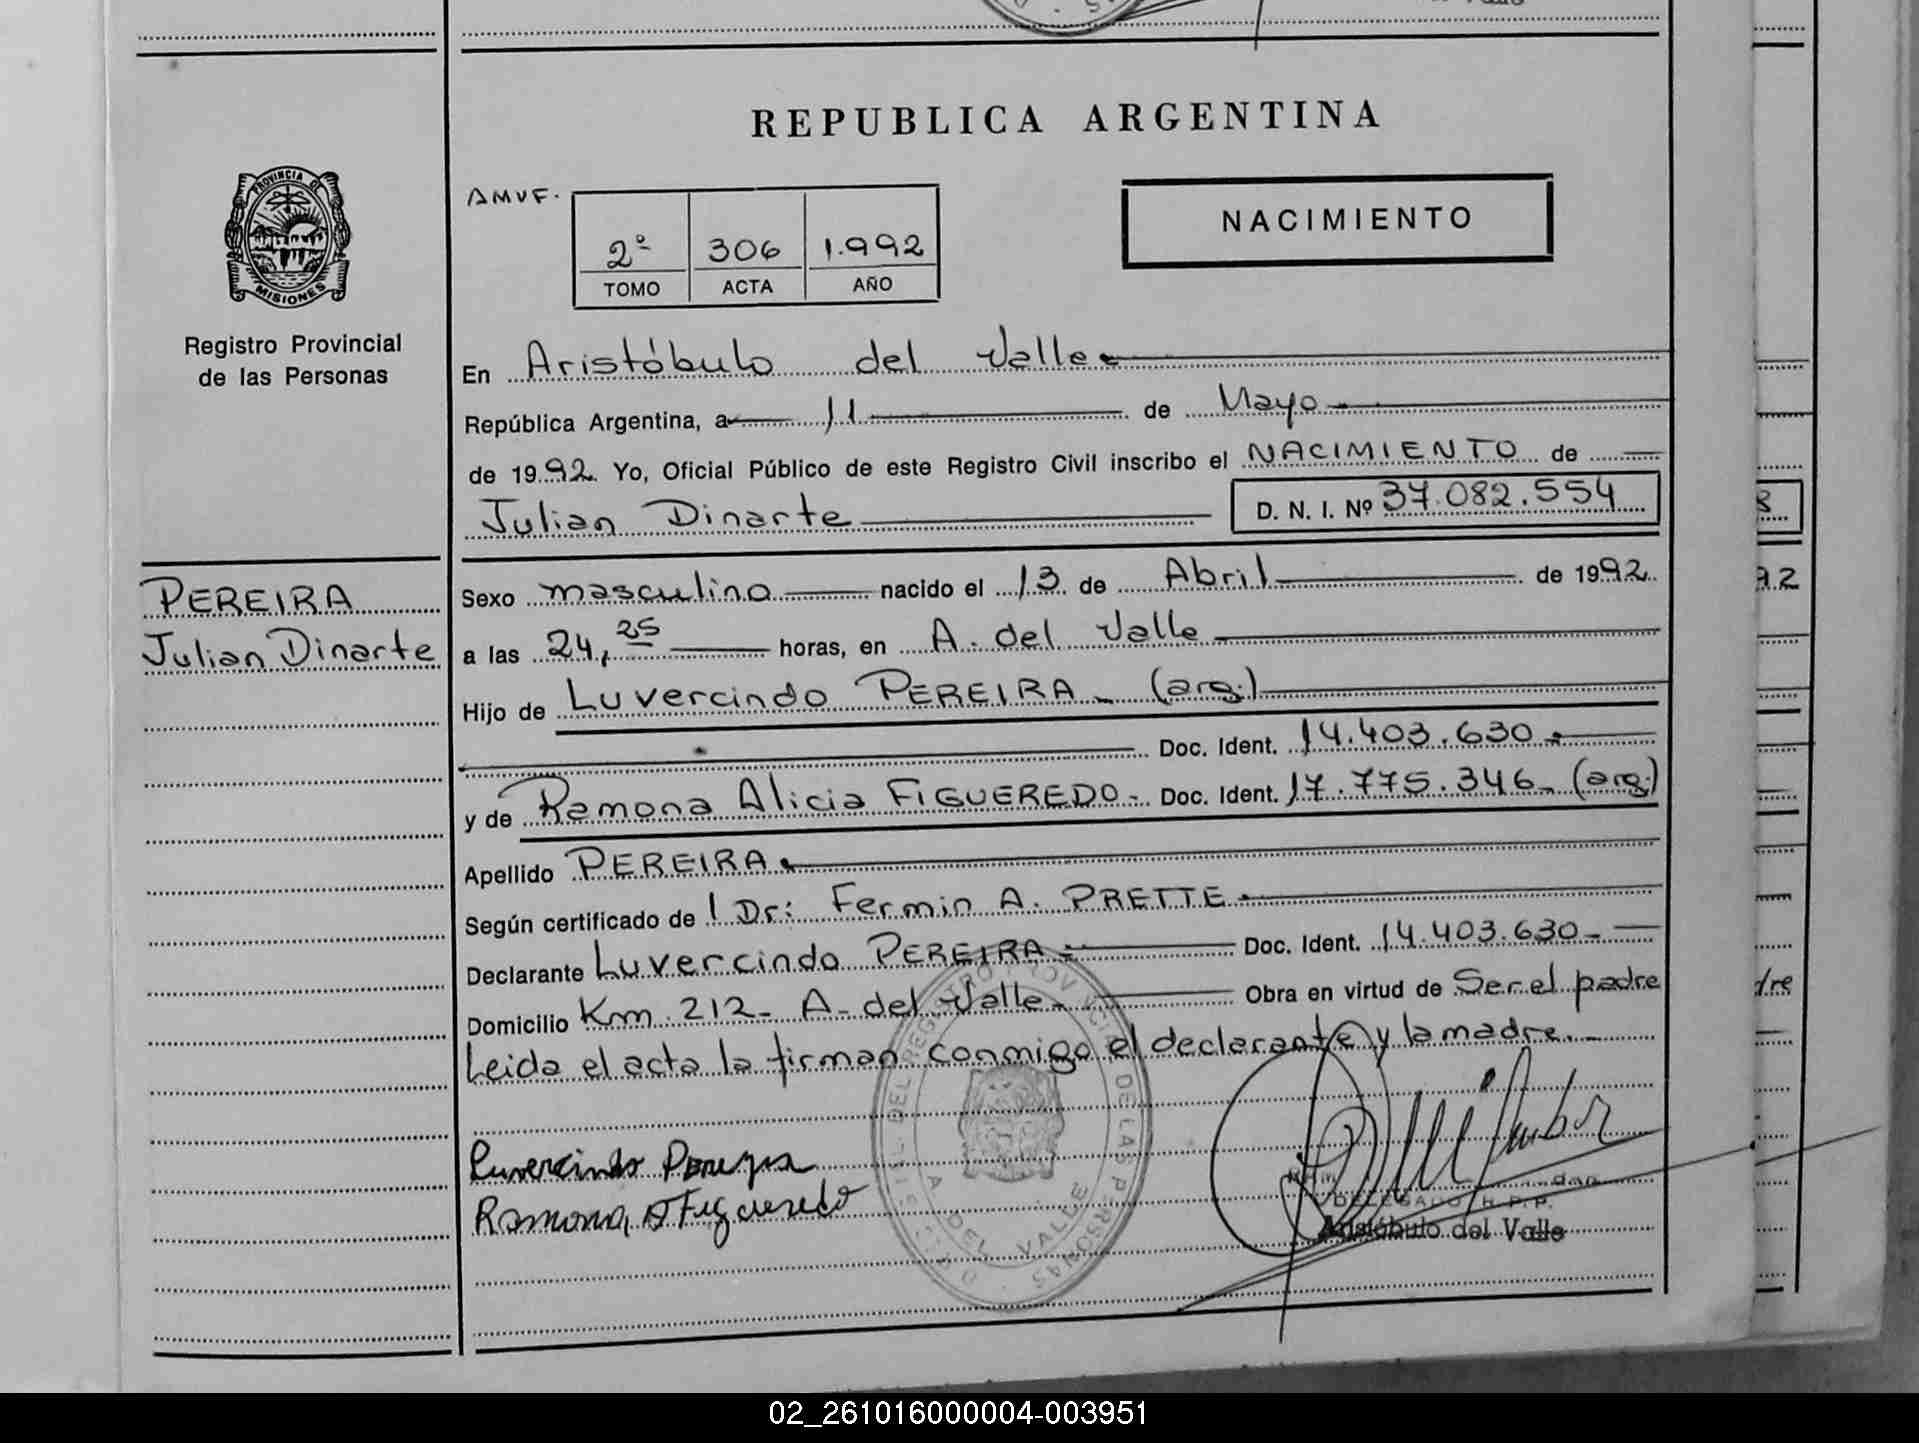 REPUBLICA ARGENTINA
PROVINCIA DE
MISIONES
Registro Provincial
de las Personas
AMVF.
2º 306 1.992
TOMO ACTA AÑO
NACIMIENTO
En Aristóbulo del Valle
República Argentina, a 11 de Mayo
de 1992. Yo, Oficial Público de este Registro Civil inscribo el NACIMIENTO de
Julian Dinarte D. N. I. Nº 37.082.554
PEREIRA
Julian Dinarte
Sexo masculino nacido el 13 de Abril de 1992
a las 24,25 horas, en A. del Valle
Hijo de Luvercindo PEREIRA - (arg.)
Doc. Ident. 14.403.630
y de Ramona Alicia FIGUEREDO - Doc. Ident. 17.775.346 - (arg.)
Apellido PEREIRA
Según certificado de l Dr: Fermin A. PRETTE
Declarante Luvercindo PEREIRA - Doc. Ident. 14.403.630 -
Domicilio Km 212 - A. del Valle - Obra en virtud de Ser el padre
Leida el acta la firman conmigo el declarante y la madre. -
Luvercindo Pereyra
Ramona A Figueredo
DEL REGISTRO PROVINCIAL DE LAS PERSONAS
A. DEL VALLE
DELEGADO R.P.P.
Aristóbulo del Valle
92
dre
02_261016000004-003951